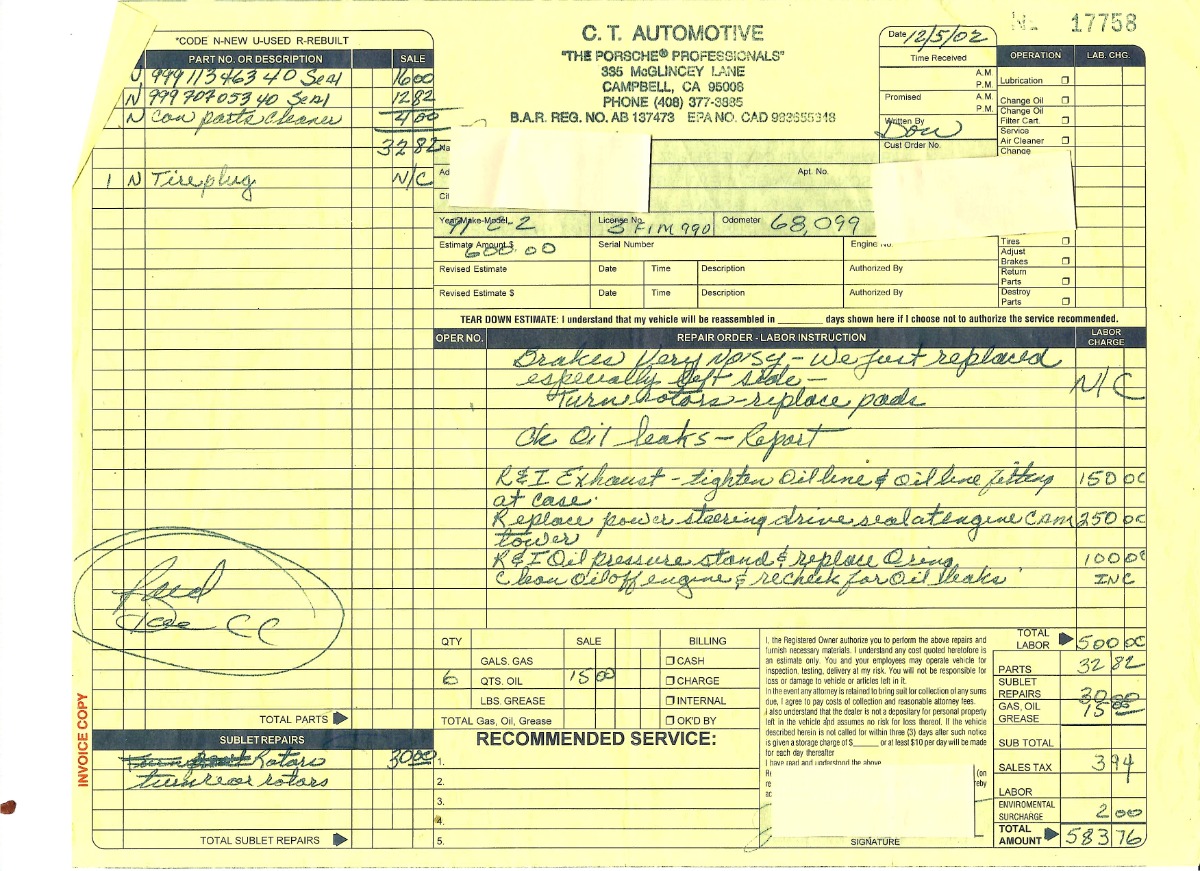 No. 17758
C. T. AUTOMOTIVE
"THE PORSCHE® PROFESSIONALS"
335 McGLINCEY LANE
CAMPBELL, CA 95008
PHONE (408) 377-3885
B.A.R. REG. NO. AB 137473 EPA NO. CAD 983655348
Date 12/5/02
Time Received
A.M.
P.M.
Promised
A.M.
P.M.
Written By
Don
Cust Order No.
OPERATION LAB. CHG.
Lubrication
Change Oil
Change Oil
Filter Cart.
Service
Air Cleaner
Change
Tires
Adjust
Brakes
Return
Parts
Destroy
Parts
*CODE N-NEW U-USED R-REBUILT
PART NO. OR DESCRIPTION SALE
999 113 463 40 Seal 16 00
N 999 707 053 40 Seal 12 82
N Can parts cleaner 4 00
32 82
1 N Tire plug N/C
Na
Ad
Apt. No.
Cit
Year-Make-Model 91 C-2
License No. 3FIM990
Odometer 68,099
Estimate Amount $ 600.00
Serial Number
Engine No.
Revised Estimate Date Time Description Authorized By
Revised Estimate $ Date Time Description Authorized By
TEAR DOWN ESTIMATE: I understand that my vehicle will be reassembled in ________ days shown here if I choose not to authorize the service recommended.
OPER NO. REPAIR ORDER - LABOR INSTRUCTION LABOR CHARGE
Brakes Very Noisy - We just replaced
especially left side - N/C
Turn rotors - replace pads
Ck Oil leaks - Report
R&I Exhaust - tighten Oil line & oil line fitting 150 00
at case.
Replace power steering drive seal at engine cam 250 00
tower
R&I Oil pressure stand & replace Oring 100 00
Clean Oil off engine & recheck for Oil leaks INC
CC
QTY SALE BILLING
GALS. GAS CASH
6 QTS. OIL 15 00 CHARGE
LBS. GREASE INTERNAL
TOTAL Gas, Oil, Grease OK'D BY
TOTAL PARTS
INVOICE COPY
SUBLET REPAIRS
Rotors 30 00
turn rear rotors
TOTAL SUBLET REPAIRS
RECOMMENDED SERVICE:
1.
2.
3.
4.
5.
I, the Registered Owner authorize you to perform the above repairs and
furnish necessary materials. I understand any cost quoted heretofore is
an estimate only. You and your employees may operate vehicle for
inspection, testing, delivery at my risk. You will not be responsible for
loss or damage to vehicle or articles left in it.
In the event any attorney is retained to bring suit for collection of any sums
due, I agree to pay costs of collection and reasonable attorney fees.
I also understand that the dealer is not a depositary for personal property
left in the vehicle and assumes no risk for loss thereof. If the vehicle
described herein is not called for within three (3) days after such notice
is given a storage charge of $______ or at least $10 per day will be made
for each day thereafter
I have read and understood the above
(on
reby
SIGNATURE
TOTAL LABOR 500 00
PARTS 32 82
SUBLET REPAIRS 30 00
GAS, OIL GREASE 15 00
SUB TOTAL
SALES TAX 3 94
LABOR
ENVIROMENTAL SURCHARGE 2 00
TOTAL AMOUNT 583 76